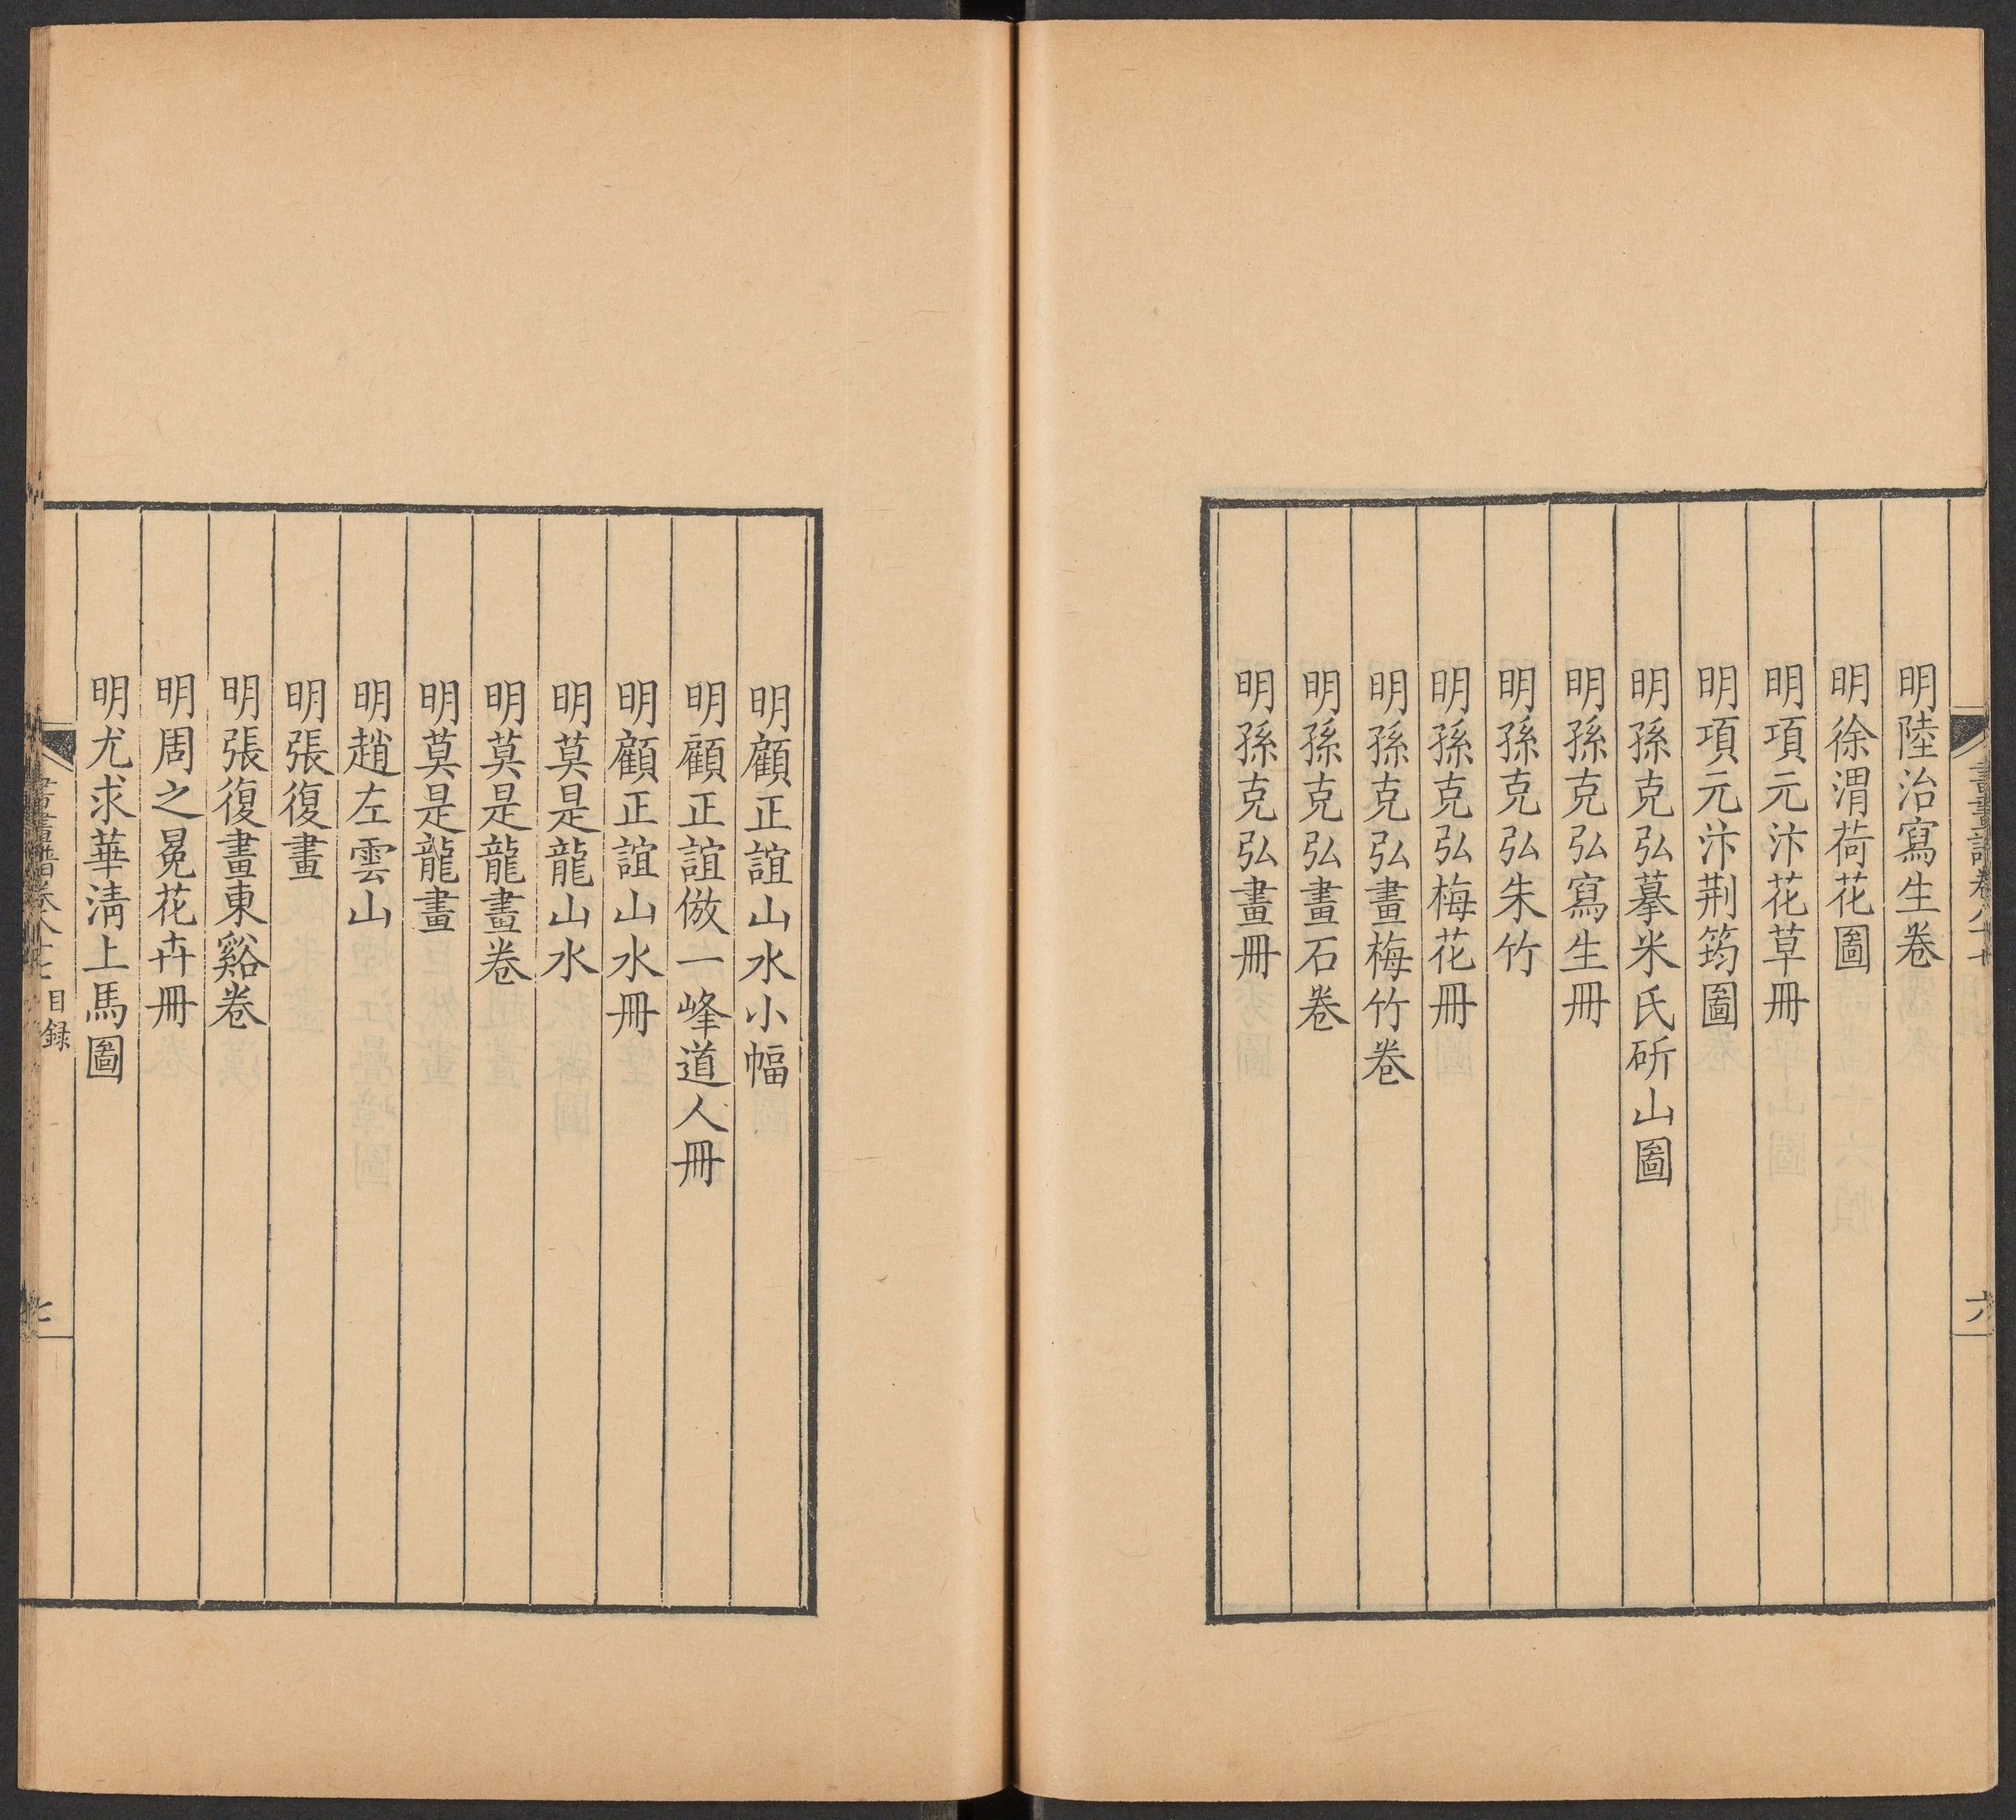 明陸治寫生卷
明徐渭荷花圖
明項元汴花草冊
明項元汴荆筠圖
明孫克弘摹米氏斫山圖
明孫克弘寫生冊
明孫克弘朱竹
明孫克弘梅花冊
明孫克弘畫梅竹卷
明孫克弘畫石卷
明孫克弘畫冊
六
明顧正誼山水小幅
明顧正誼倣一峰道人冊
明顧正誼山水冊
明莫是龍山水
明莫是龍畫卷
明莫是龍畫
明趙左雲山
明張復畫
明張復畫東谿卷
明周之冕花卉冊
明尤求華淸上馬圖
書畫譜卷八十七 目録
七